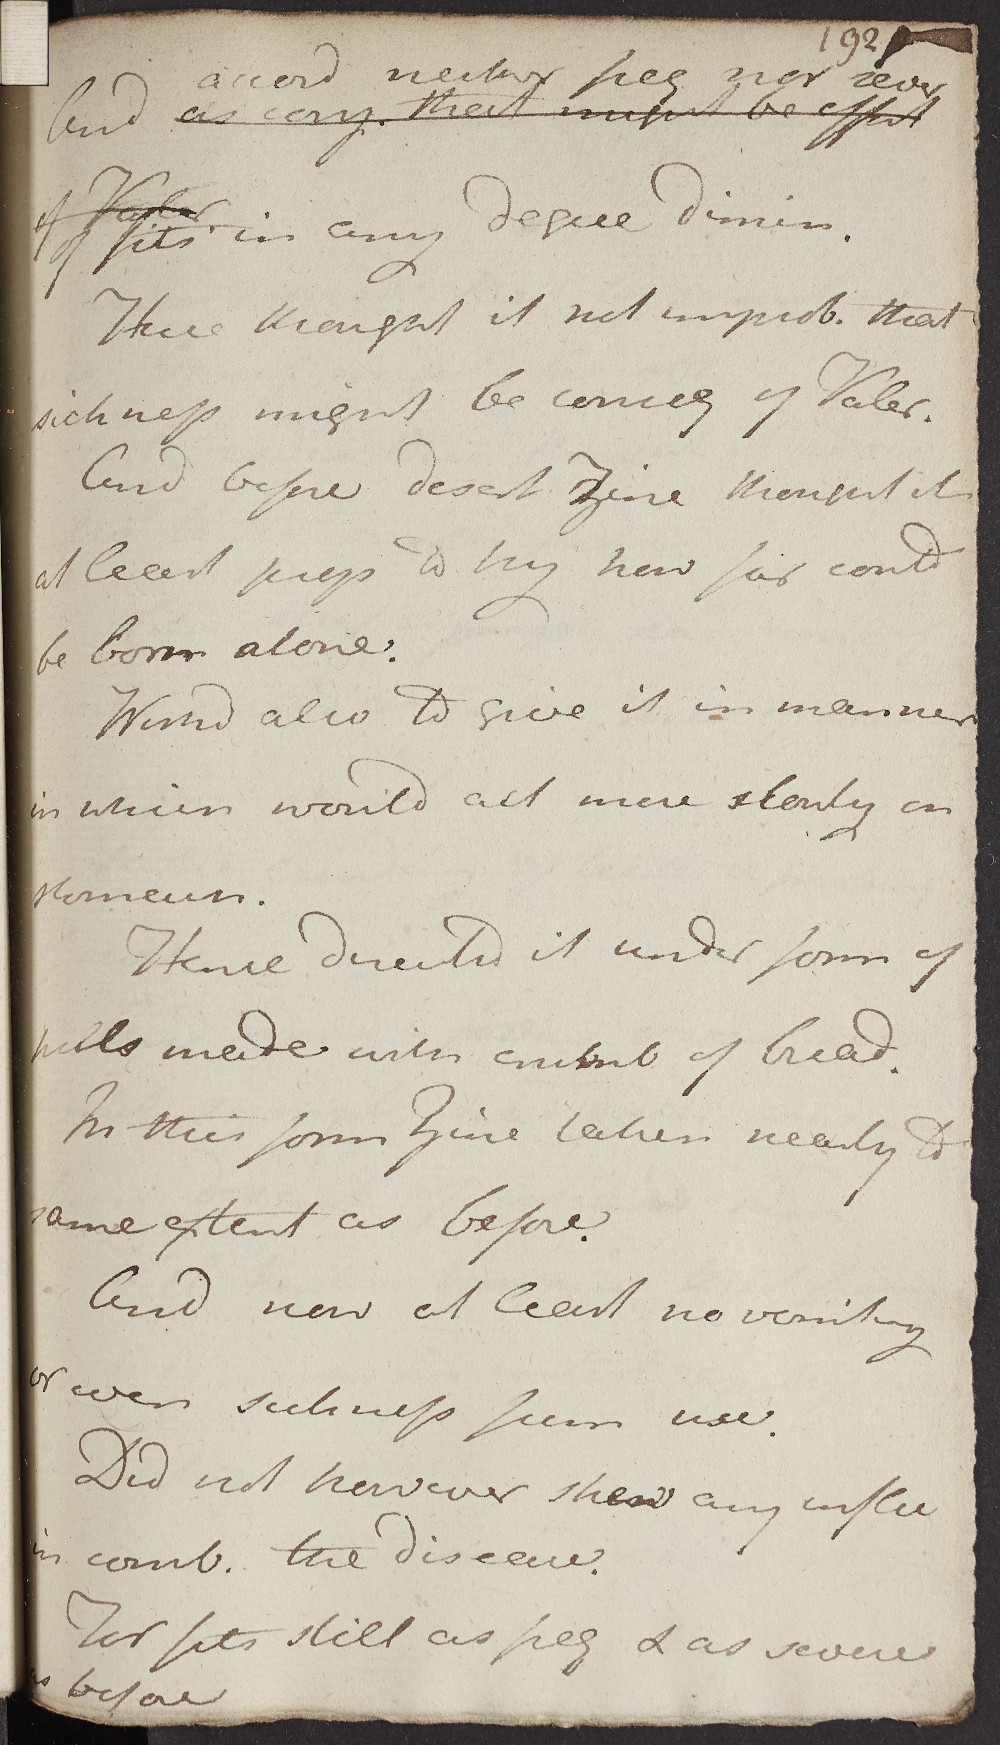 192
accord neither freq nor sever
And as conj. that might be effect
of Valer.
of fits in any degree dimin.
Have thought it not improb. that
sickness might be conseq of Valer.
And before desert Zinc thought it
at least prop to try how far could
be born alone.
Wishd also to give it in manner
in which would act more slowly on
stomach.
Hence directed it under form of
pills made with crumb of bread.
In this form Zinc taken nearly to
same extent as before.
And now at least no vomiting
or even sickness from use.
Did not however shew any influ
in comb. the disease.
For fits still as freq & as severe
as before